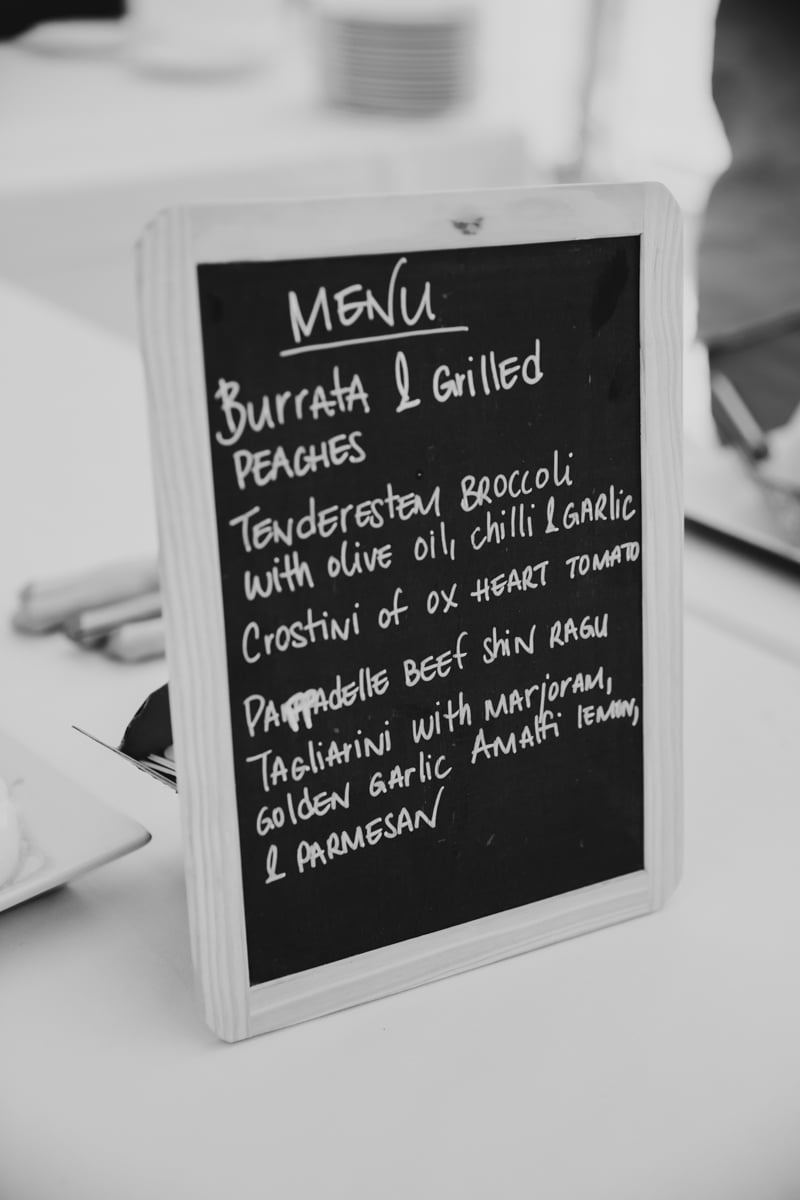 MENU
Burrata & Grilled
PEACHES
TENDERESTEM BROCCOLI
with olive oil, chilli & GARLIC
Crostini of OX HEART TOMATO
PAPPAdelle BEEF shin RAGU
TAGLIARINI with MARJORAM,
Golden GARLIC AMALFI lemon,
& PARMESAN